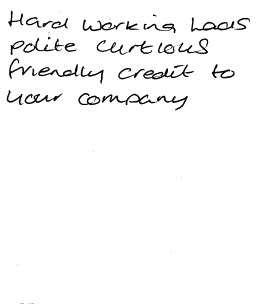 Hard working lads
polite curtious
friendly credit to
your company